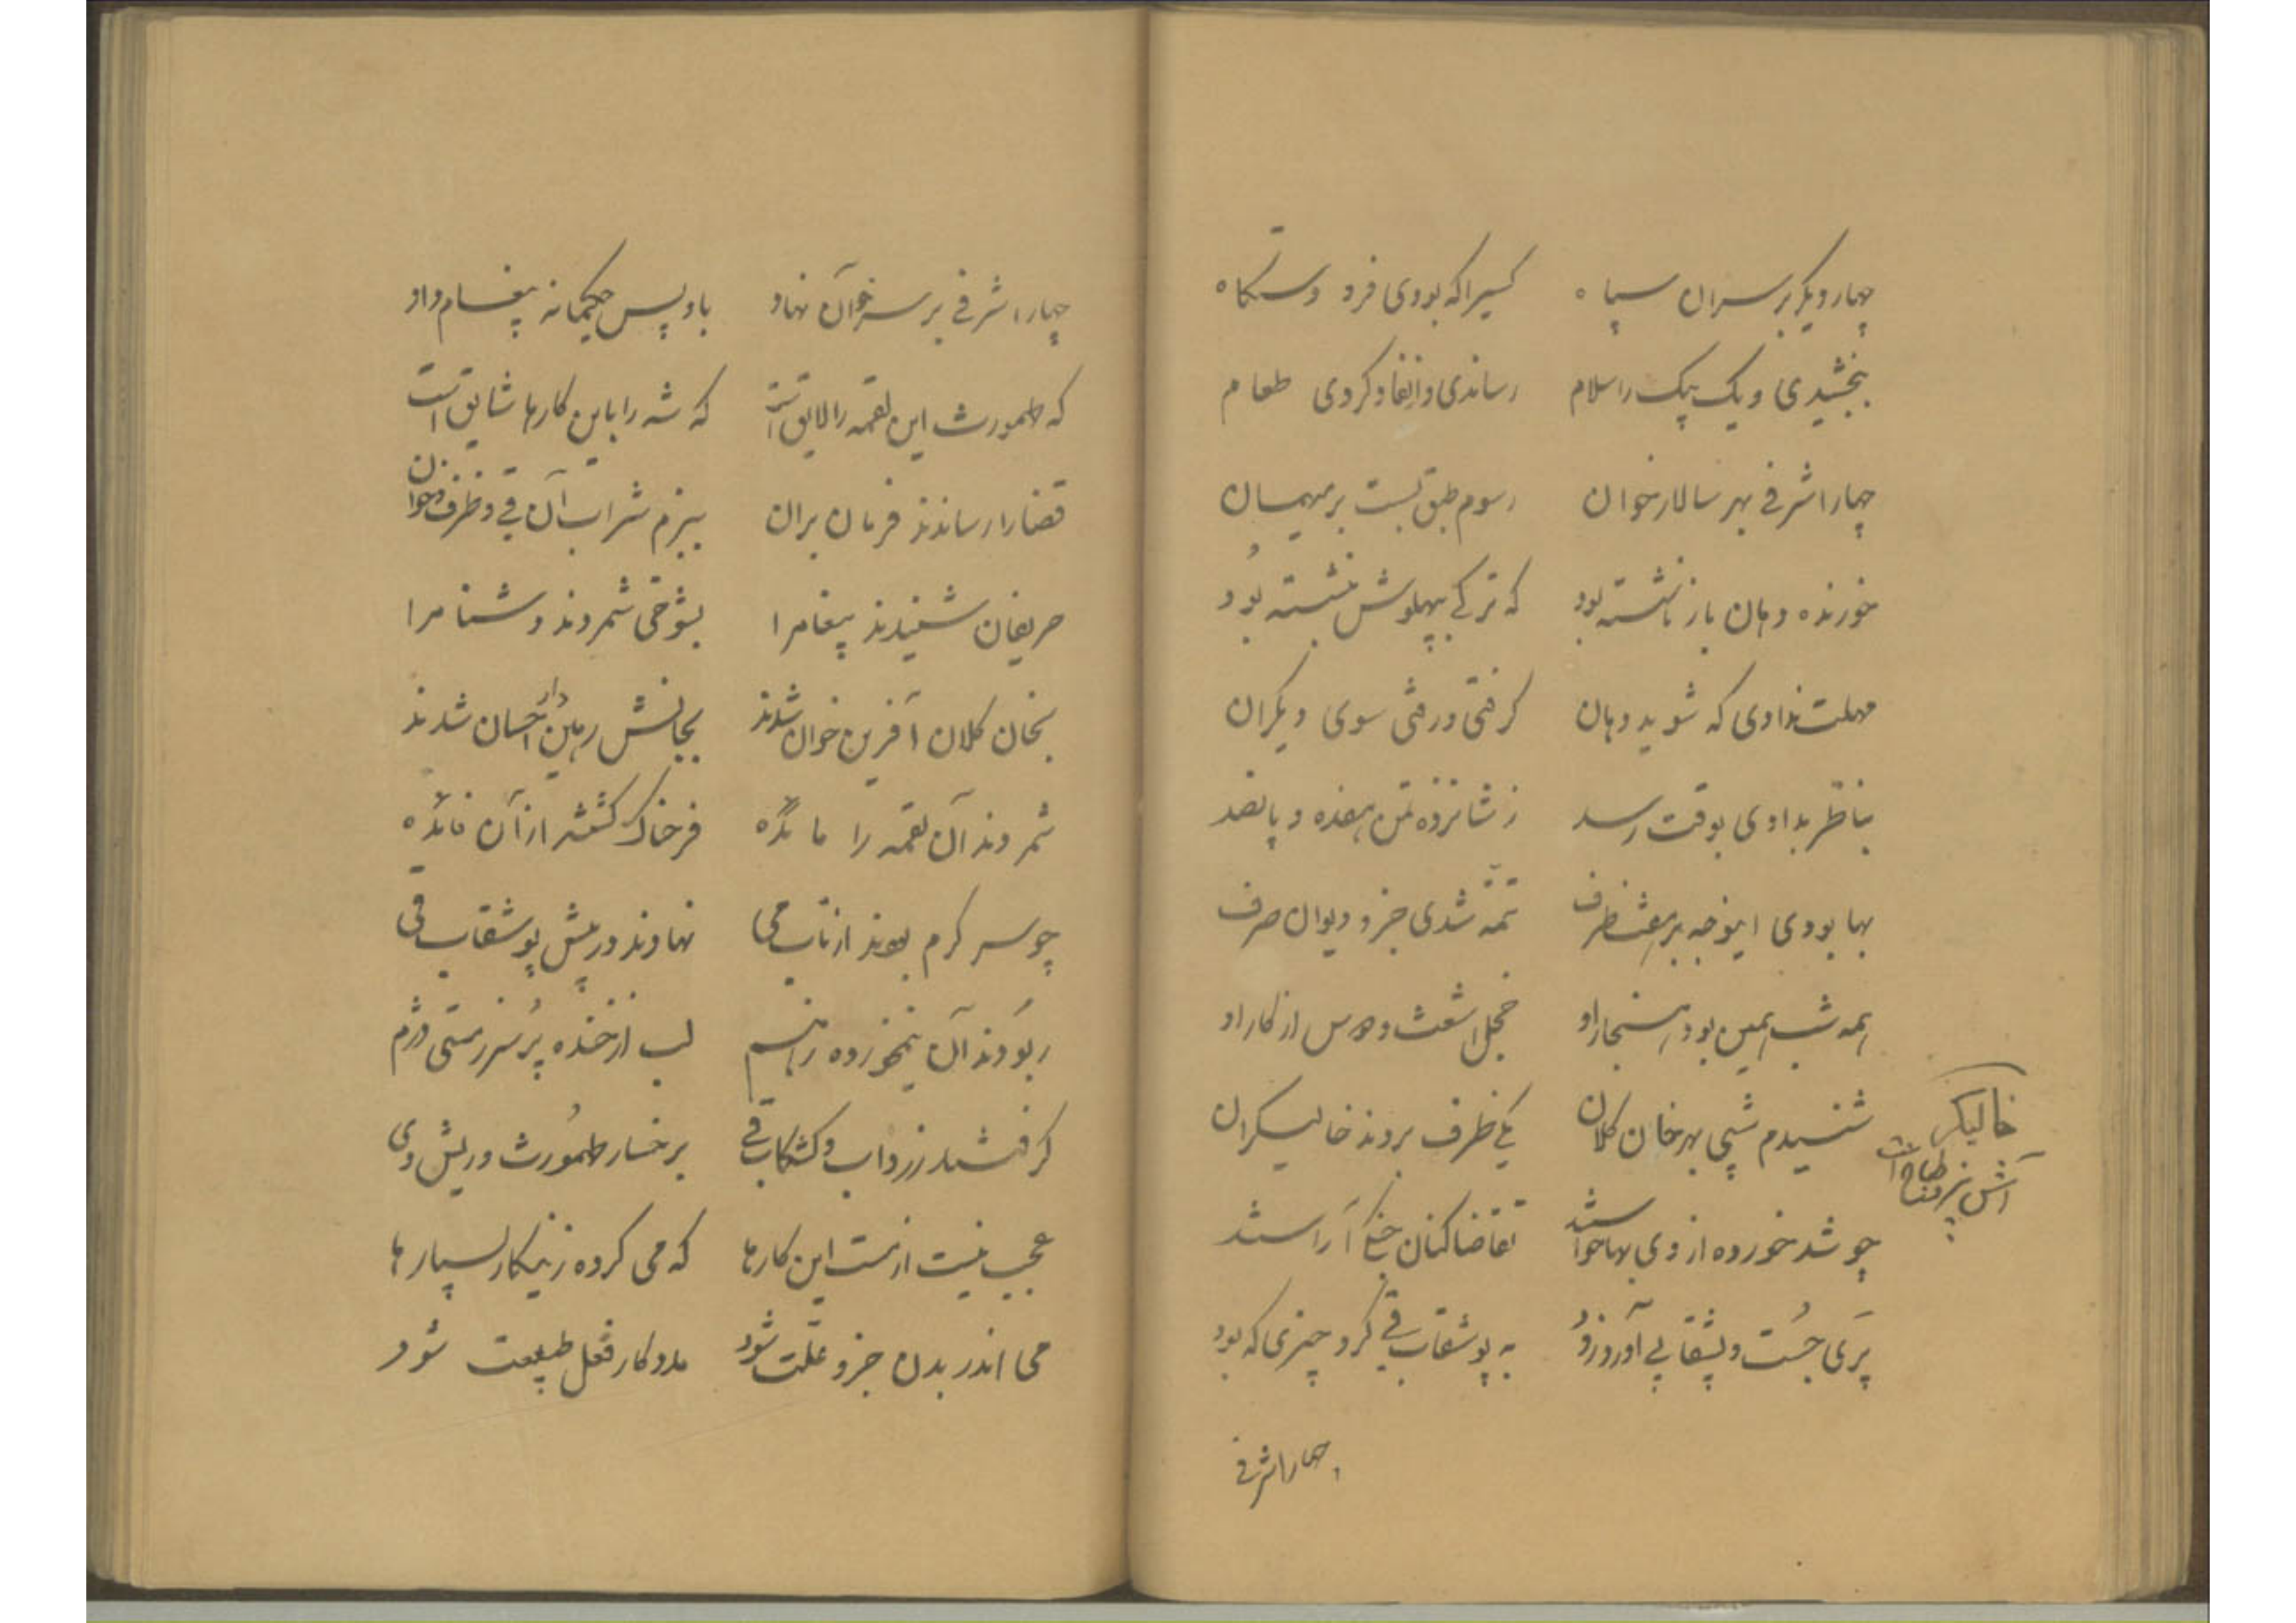 چهار دیگر بر سران سپاه کسیرا که بودی فرو دستگاه
بخشیدی و یک پیک را سلام رساندی و انفاد کردی طعام
چهار اشرفی بهر سالار خوان رسوم طبق بست بر میهمان
خورنده دهان باز ناشسته بود که ترکی بپهلوش بنشسته بود
مهلت ندادی که شوید دهان گرفتی و رفتی سوی دیگران
بناظر بدادی بوقت رسد ز شانزده تمن هفده و پانصد
بها بودی اینوجه بر ظرف تتمه شدی جزو دیوان صرف
همه شب همین بود هنجار او خجل اشعث و از کار او
شنیدم شبی بهر خان کلان یکی ظرف بردند خالیگران
خالیگر
آش پز و طباخ است
چو شد خورده از وی بها خواستند تقاضا کنان آراستند
پری جست و بشقابی آورد زود به بوشقاب قی کرد چیزی که بود
چهار اشرفی
چهار اشرفی بر سر خوان نهاد باو پس حکیمانه پیغام داد
که طهمورث این لقمه را لایق است که شه را باین کارها شایق است
قضا را رساندند فرمان بران ببزم شراب آن قی و ظرف و خوان
حریفان شنیدند پیغام را بشوخی شمردند دشنام را
بخان کلان آفرین خوان شدند بجانش رهین دار احسان شدند
شمردند آن لقمه را مائده فرحناک گشتند از آن فائده
چو سر گرم بودند از تاب می نهادند در پیش بوشقاب قی
ربودند آن نیمخورده ز هم لب از خنده پر سر ز مستی دژم
گرفتند زرداب و کشکاب قی بر خسار طهمورث و ریش وی
عجب نیست از مست این کارها که می کرده زینکار بسیارها
می اندر بدن جزو علت شود مددکار فعل طبیعت شود